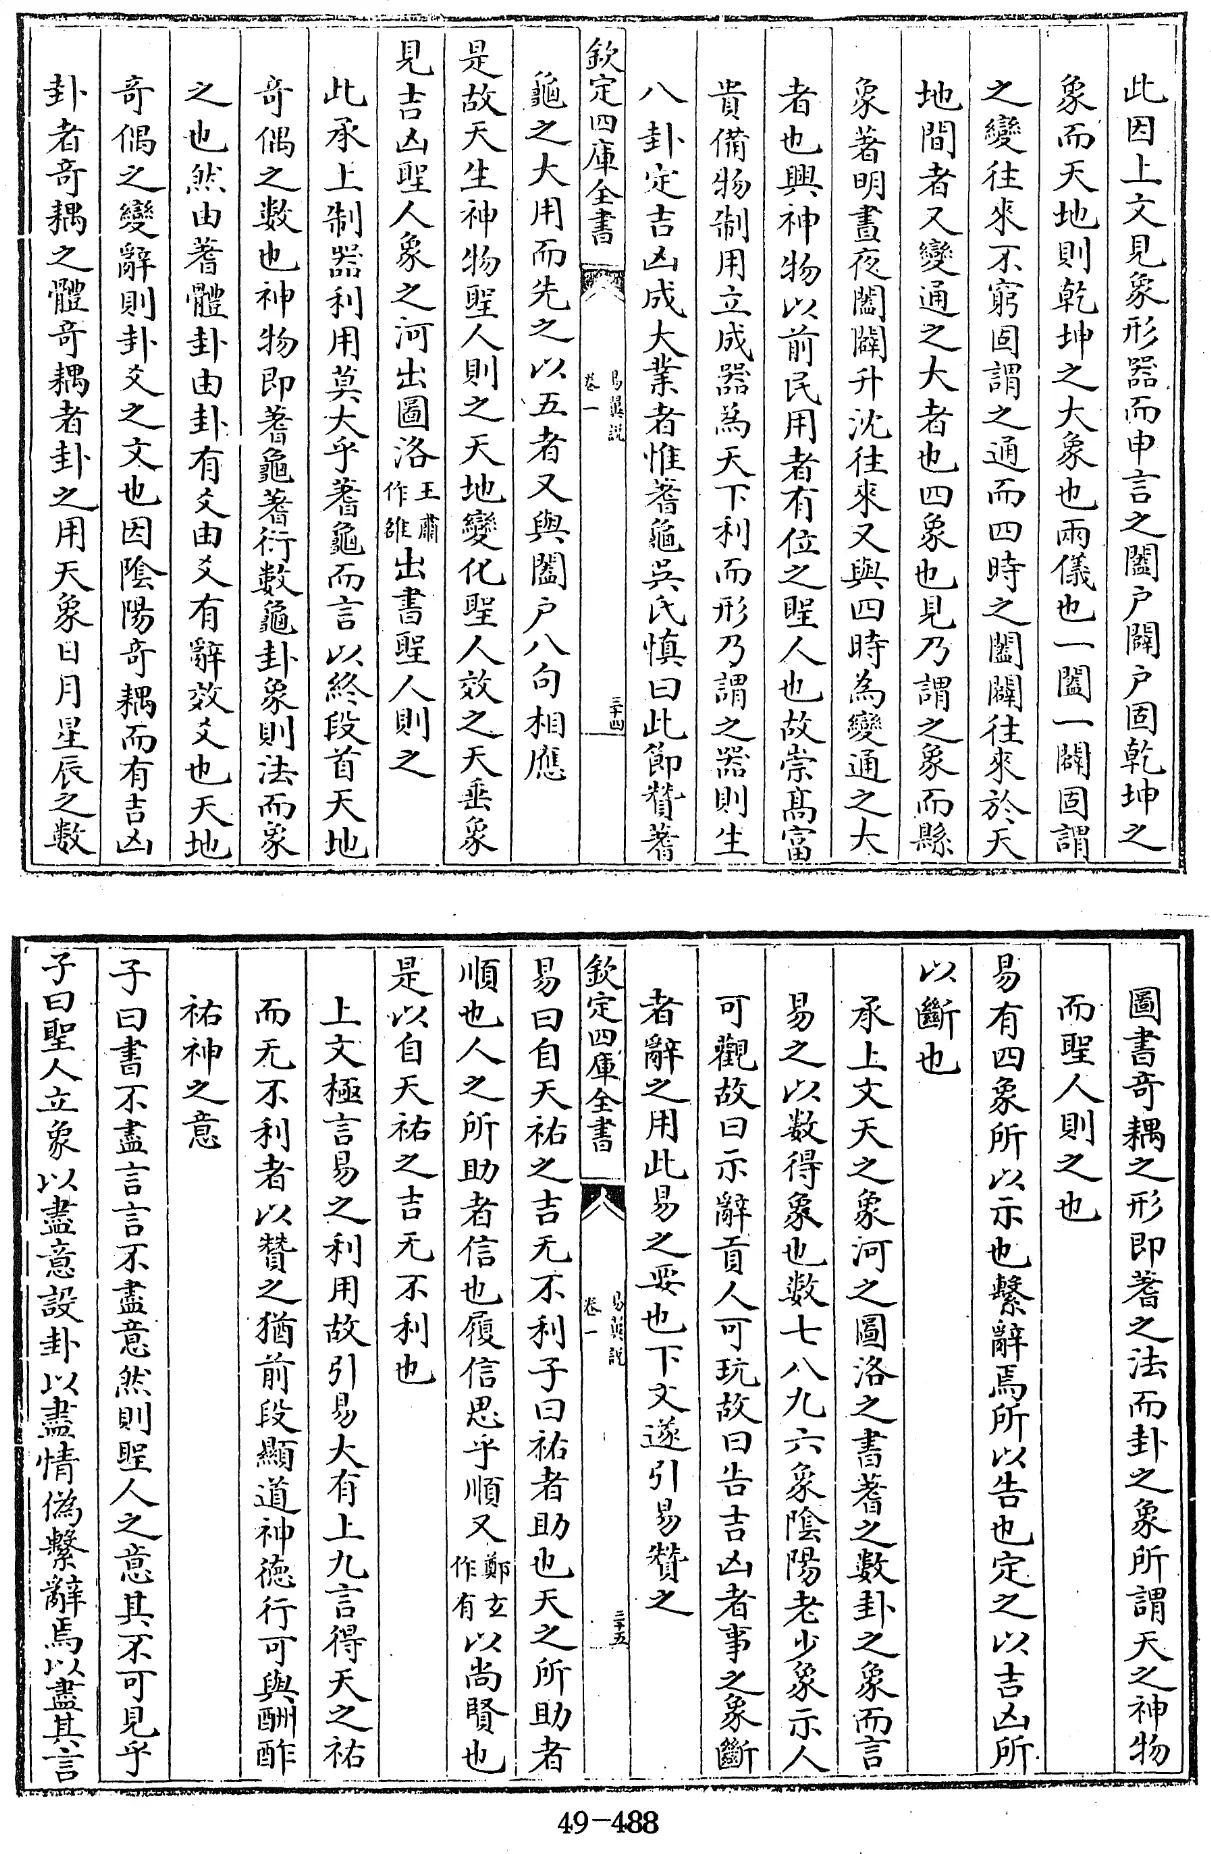 此因上文見象形器而申言之闔戶闢戶固乾坤之
象而天地則乾坤之大象也兩儀也一闔一闢固謂
之變往來不窮固謂之通而四時之闔闢往來於天
地間者又變通之大者也四象也見乃謂之象而縣
象著明晝夜闔闢升沈往來又與四時為變通之大
者也興神物以前民用者有位之聖人也故崇髙富
貴備物制用立成器為天下利而形乃謂之器則生
八卦定吉凶成大業者惟蓍龜吳氏慎曰此節贊蓍
欽定四庫全書
易翼説
卷一
三十四
龜之大用而先之以五者又與闔户八句相應
是故天生神物聖人則之天地變化聖人效之天垂象
見吉凶聖人象之河出圖洛王肅作雒出書聖人則之
此承上制器利用莫大乎蓍龜而言以終段首天地
奇偶之數也神物即蓍龜蓍衍數龜卦象則法而象
之也然由蓍體卦由卦有爻由爻有辭效爻也天地
奇偶之變辭則卦爻之文也因陰陽奇耦而有吉凶
卦者奇耦之體奇耦者卦之用天象日月星辰之數
圖書奇耦之形即蓍之法而卦之象所謂天之神物
而聖人則之也
易有四象所以示也繫辭焉所以告也定之以吉凶所
以斷也
承上文天之象河之圖洛之書蓍之數卦之象而言
易之以數得象也數七八九六象陰陽老少象示人
可觀故曰示辭貢人可玩故曰告吉凶者事之象斷
者辭之用此易之要也下文遂引易贊之
欽定四庫全書
易翼説
卷一
三十五
易曰自天祐之吉无不利子曰祐者助也天之所助者
順也人之所助者信也履信思乎順又鄭玄作有以尚賢也
是以自天祐之吉无不利也
上文極言易之利用故引易大有上九言得天之祐
而无不利者以贊之猶前段顯道神德行可與酬酢
祐神之意
子曰書不盡言言不盡意然則聖人之意其不可見乎
子曰聖人立象以盡意設卦以盡情偽繫辭焉以盡其言
49-488